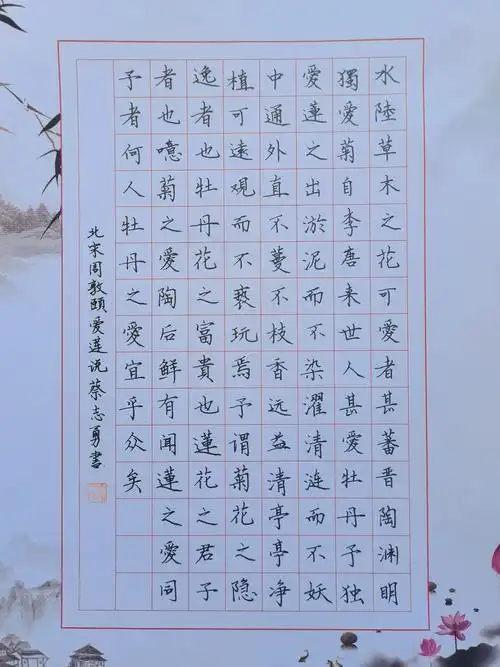 水陸草木之花可愛者甚蕃晋陶渊明
獨愛菊自李唐来世人甚愛牡丹予独
愛蓮之出淤泥而不染濯清涟而不妖
中通外直不蔓不枝香远益清亭亭净
植可遠觀而不亵玩焉予謂菊花之隐
逸者也牡丹花之富貴也蓮花之君子
者也噫菊之愛陶后鮮有聞蓮之愛同
予者何人牡丹之愛宜乎众矣
北宋周敦頤愛蓮说蔡志勇書